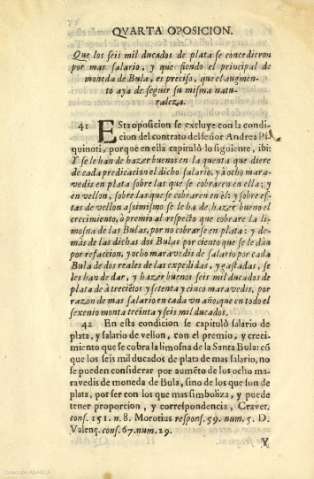 QVARTA OPOSICION.
Que los seis mil ducados de plata se concedieron
por mas salario, y que siendo el principal de
moneda de Bula, es preciso, que el augmen-
to aya de seguir su misma natu-
raleza.
41 Esta oposicion se excluye con la condi-
cion del contrato del señor Andrea Pi-
quinoti, porque en ella capituló lo siguiente, ibi:
Y se le han de hazer buenos en la quenta que diere
de cada predicacion el dicho salario, ya ocho mara-
vedis en plata sobre las que se cobraren en ella; y
en vellon, sobre las que se cobraren en èl: y sobre es-
tas de vellon asimismo se le ha de hazer bueno el
crecimiento, ò premio al respecto que cobrare la li-
mosna de las Bulas, por no cobrarse en plata: y de-
más de las dichas dos Bulas por ciento que se le dàn
por refaccion, y ocho maravedis de salario por cada
Bula de dos reales de las expedidas, y gastadas, se
les han de dar, y hazer buenos seis mil ducados de
plata à trecientos y setenta y cinco maravedis, por
razon de mas salario en cada vn año, que en todo el
sexenio monta treinta y seis mil ducados.
42 En esta condicion se capitulò salario de
plata, y salario de vellon, con el premio, y creci-
miento que se cobra la limosna de la Santa Bula: cõ
que los seis mil ducados de plata de mas salario, no
se pueden considerar por aumẽto de los ocho ma-
ravedis de moneda de Bula, sino de los que son de
plata, por ser con los que mas simboliza, y puede
tener proporcion, y correspondencia, Gravet.
cons. 151. n. 8. Morotius respons. 59. num. 5. D.
Valenç. cons. 67. num. 29.
Y